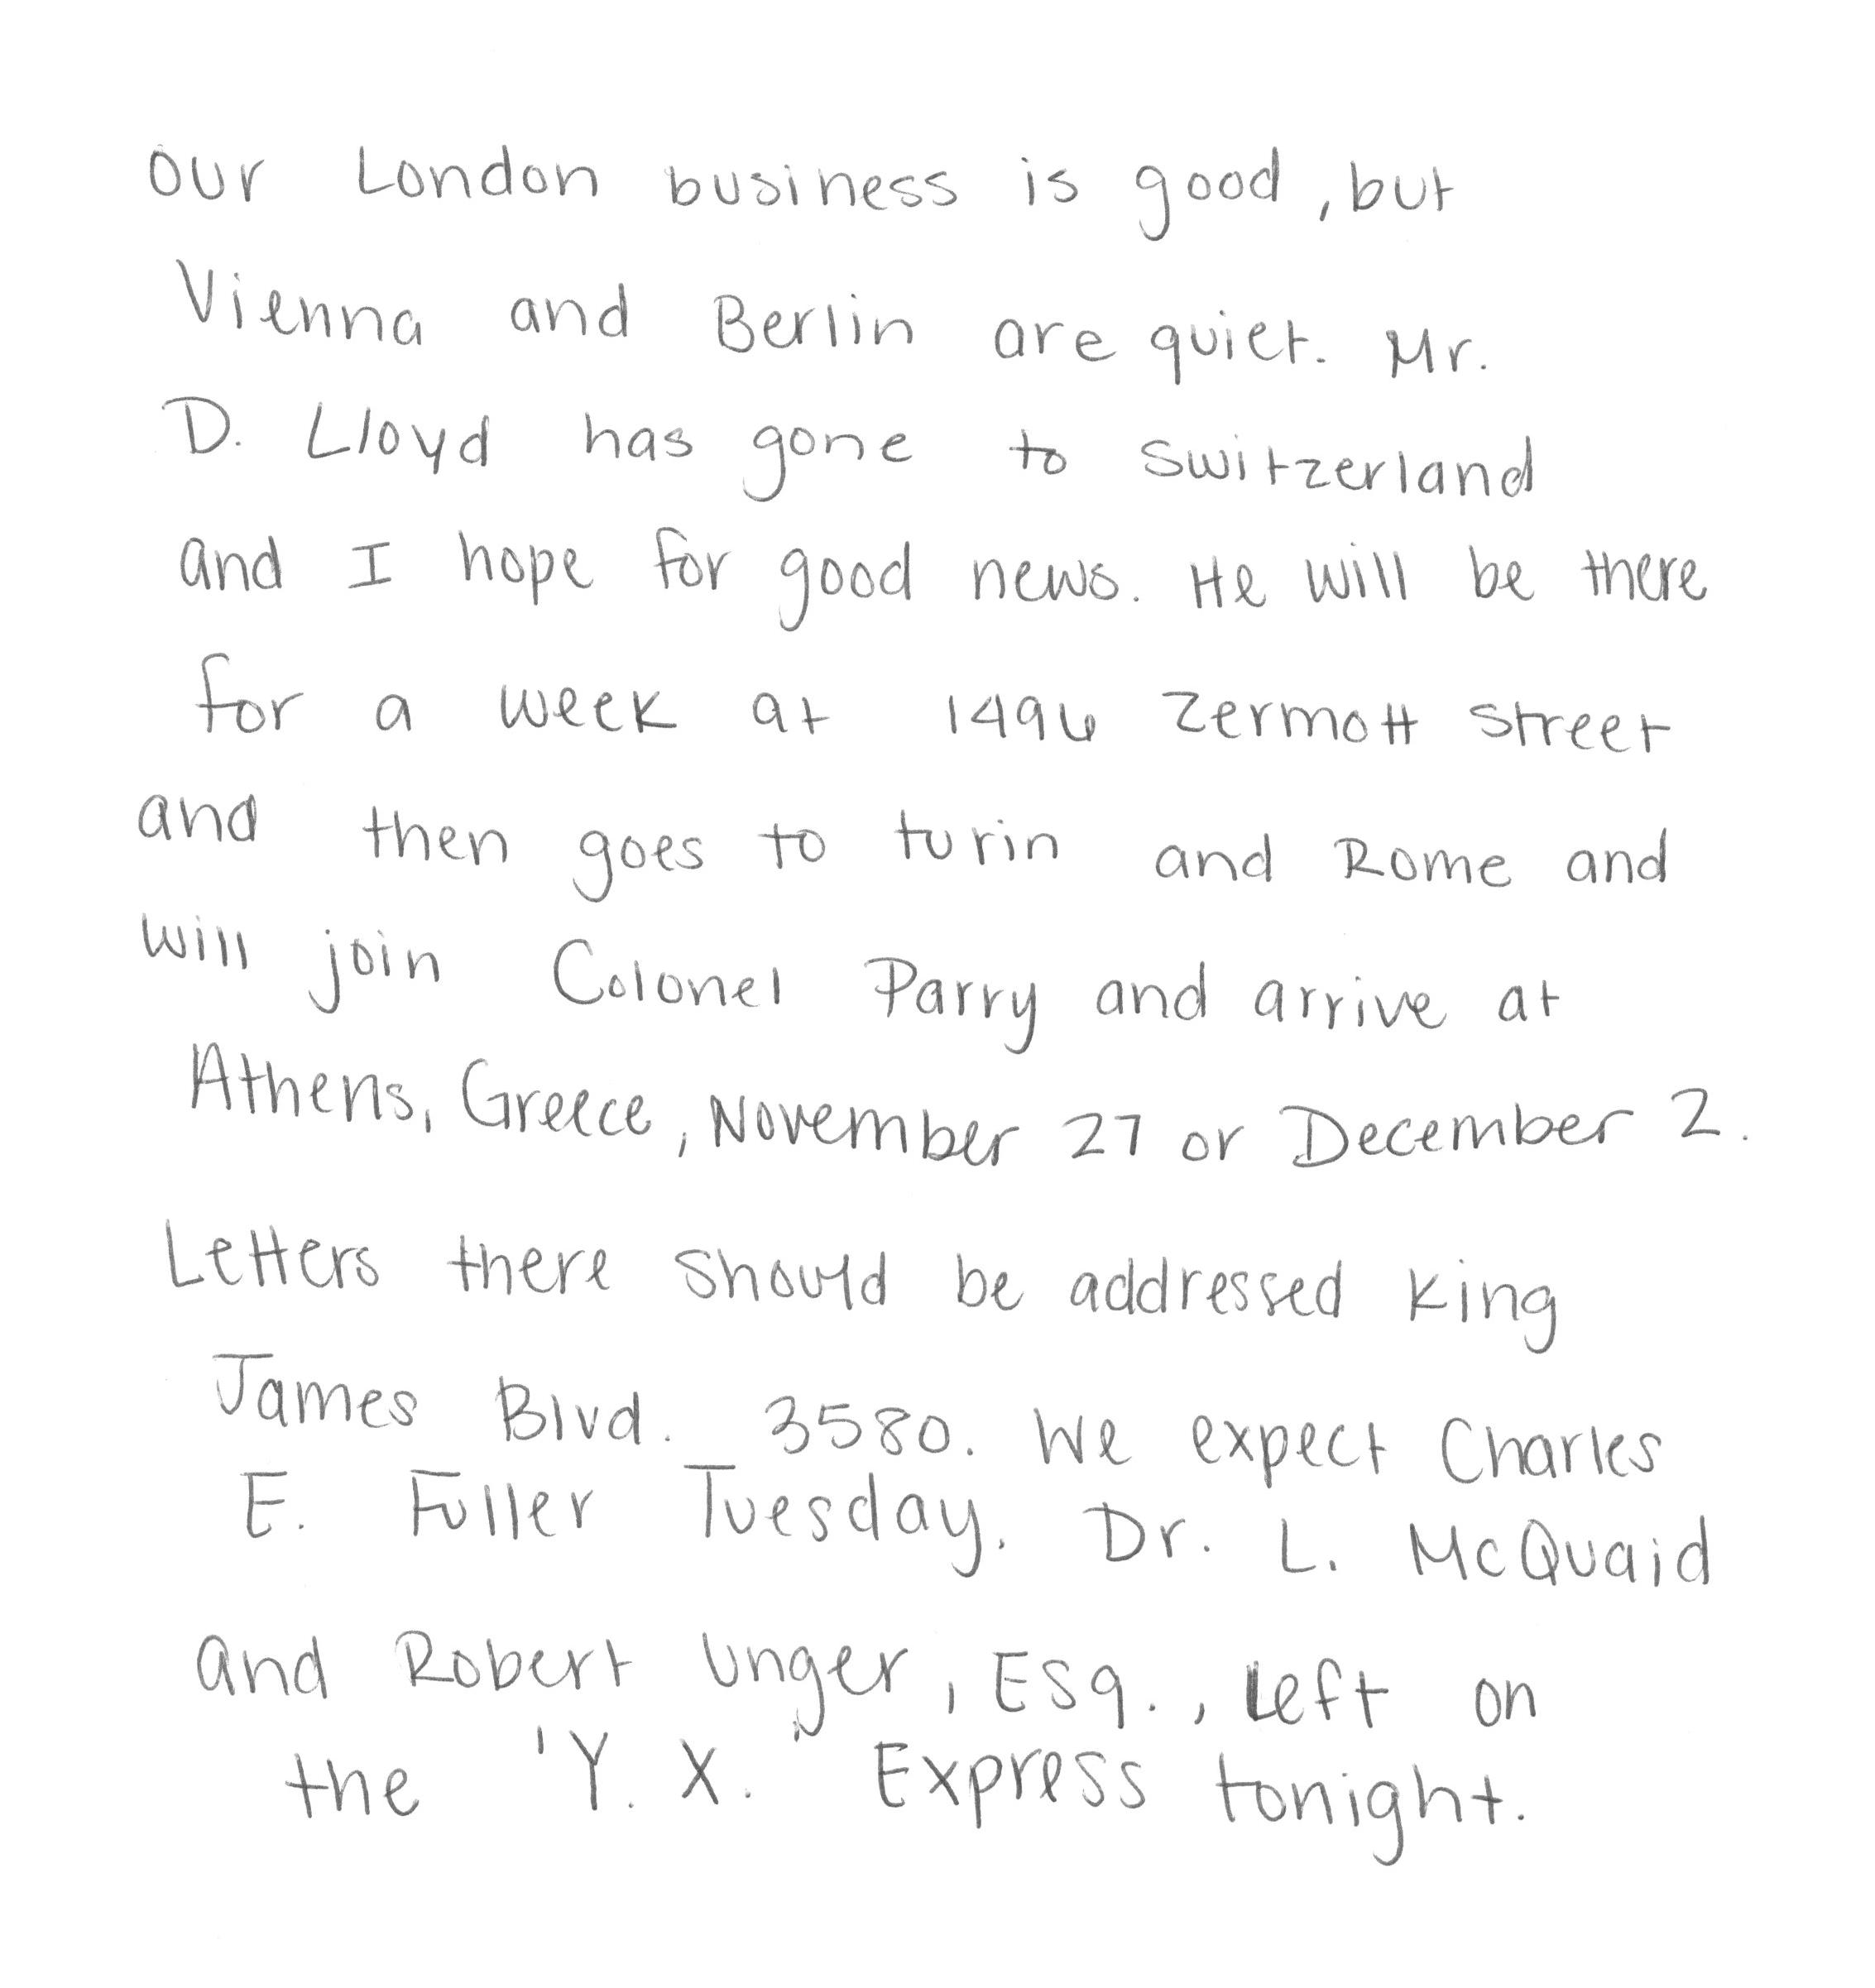 Our London business is good, but
Vienna and Berlin are quiet. Mr.
D. Lloyd has gone to Switzerland
and I hope for good news. He will be there
for a week at 1496 Zermott Street
and then goes to turin and Rome and
will join Colonel Parry and arrive at
Athens, Greece, November 27 or December 2.
Letters there should be addressed King
James Blvd. 3580. We expect Charles
E. Fuller Tuesday. Dr. L. McQuaid
and Robert Unger, Esq., left on
the 'Y. X." Express tonight.